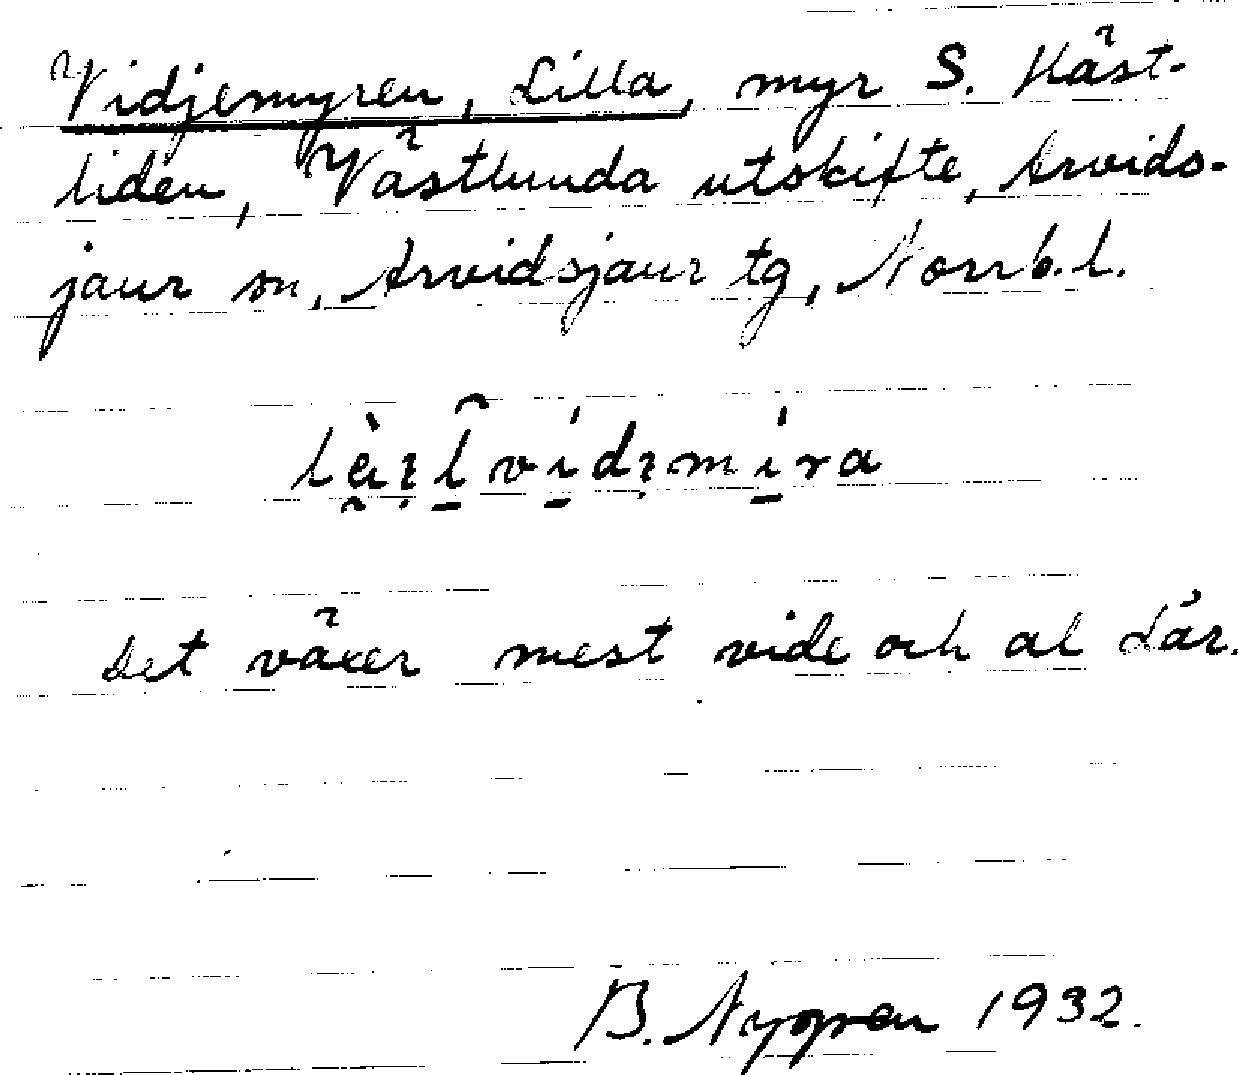 Vidjemyren, Lilla, myr S. Häst-
liden, Västlunda utskifte, Arvids-
jaur sn, Arvidsjaur tg, Norrb.l.
Det växer mest vide och al där.
B. Nygren 1932.